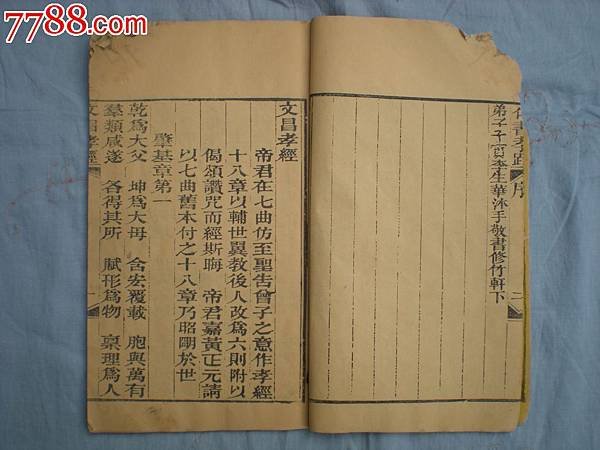 7788.com
序 二
弟子子李生華沐手敬書修竹軒下
文昌孝經
帝君在七曲仿至聖告曾子之意作孝經
十八章以輔世翼教後人改為六則附以
偈頌讚咒而經斯晦 帝君嘉黃正元請
以七曲舊本付之十八章乃昭朙於世
肇基章第一
乾為大父 坤為大母 含宏覆載 胞與萬有
羣類咸遂 各得其所 賦形為物 稟理為人
文昌孝經 一